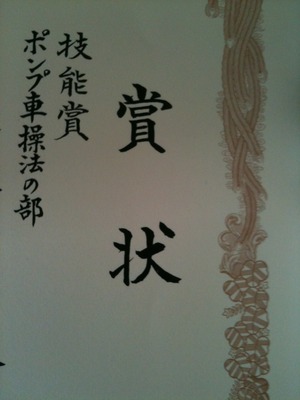 賞状
技能賞
ポンプ車操法の部